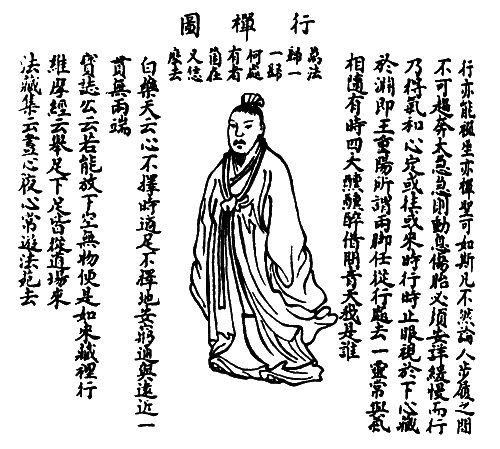 行禪圖
行亦能禪坐亦禪聖可如斯凡不然論人步履之間
不可趨奔太急急則動息傷胎必須安詳緩慢而行
乃得氣和心定或往或來時行時止眼視於下心藏
於淵即王重陽所謂兩脚任從行處去一靈常與氣
相隨有時四大醺醺醉借問青天我是誰
萬法
歸一
一歸
何處
有者
箇在
又恁
麼去
白樂天云心不擇時適足不擇地安窮通與遠近一
貫無兩端
寶誌公云若能放下空無物便是如來藏裡行
維摩經云舉足下足皆從道場來
法藏集云晝心夜心常遊法苑去